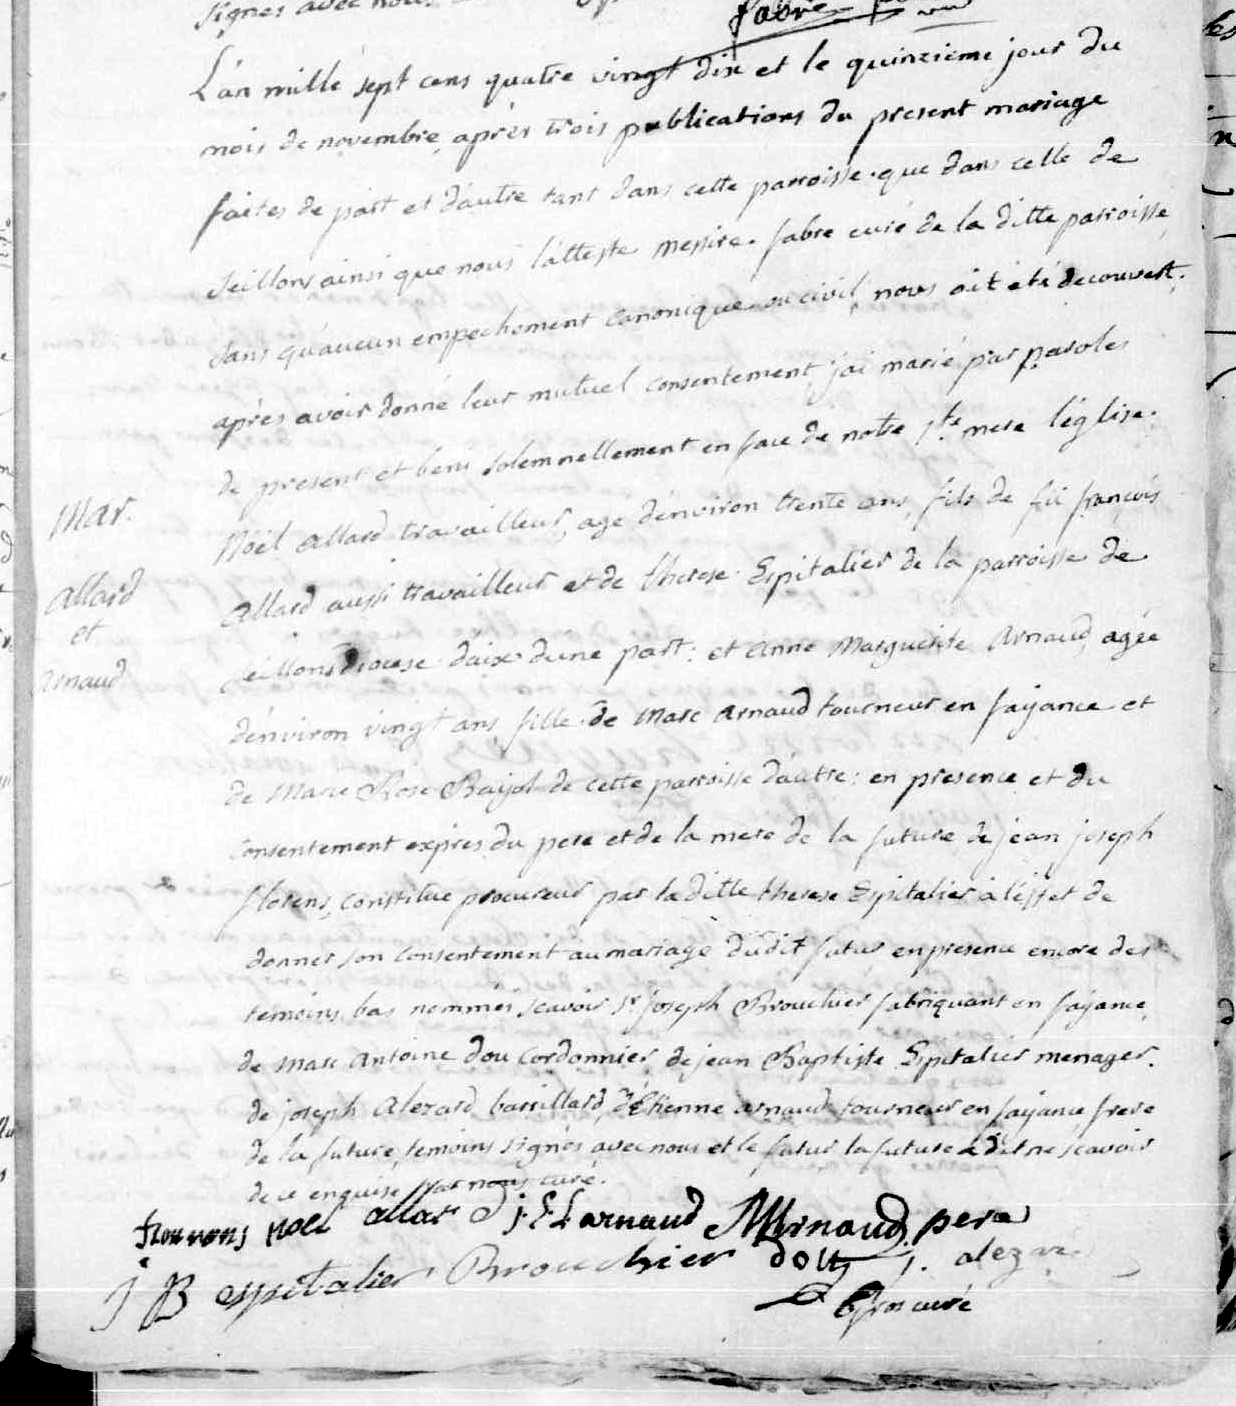 signés avec nous
fabre
L'an mille sept cens quatre vingt dix et le quinzieme jour du
mois de novembre, après trois publications du present mariage
faites de part et d'autre tant dans cette parroisse que dans celle de
Seillons ainsi que nous l'atteste messire fabre curé de la ditte parroisse,
sans qu'aucun empechement canonique ou civil nous ait été decouvert.
après avoir donné leur mutuel consentement j'ai marié par paroles
de present et beni solemnellement en face de notre ste mere l'église.
Mar.
Noël allard travailleur, age d'environ trente ans, fils de fü françois
allard
et
arnaud
allard aussi travailleur et de therese Espitalier de la parroisse de
Seillons diocese d'aix d'une part: et anne Marguerite Arnaud, agée
d'environ vingt ans, fille de Marc Arnaud tourneur en fayance et
de Marie Rose Bayol de cette parroisse d'autre: en presence et du
consentement exprès du pere et de la mere de la future de jean joseph
florens, constitue procureur par la ditte therese Espitalier à l'effet de
donner son consentement au mariage dudit futur en presence encore des
temoins bas nommés scavoir sr joseph Brouchier fabriquant en fayance,
de Marc Antoine dou cordonnier, de jean Baptiste Espitalier menager.
de joseph Alezard barrillard, d'Étienne arnaud tourneur en fayance frere
de la future, temoins signés avec nous et le futur la future a dit ne scavoir
de ce enquise par nous curé.
noel allar j. E arnaud MArnaud pere
J B espitalier Brouchier dou j. alezar
curé